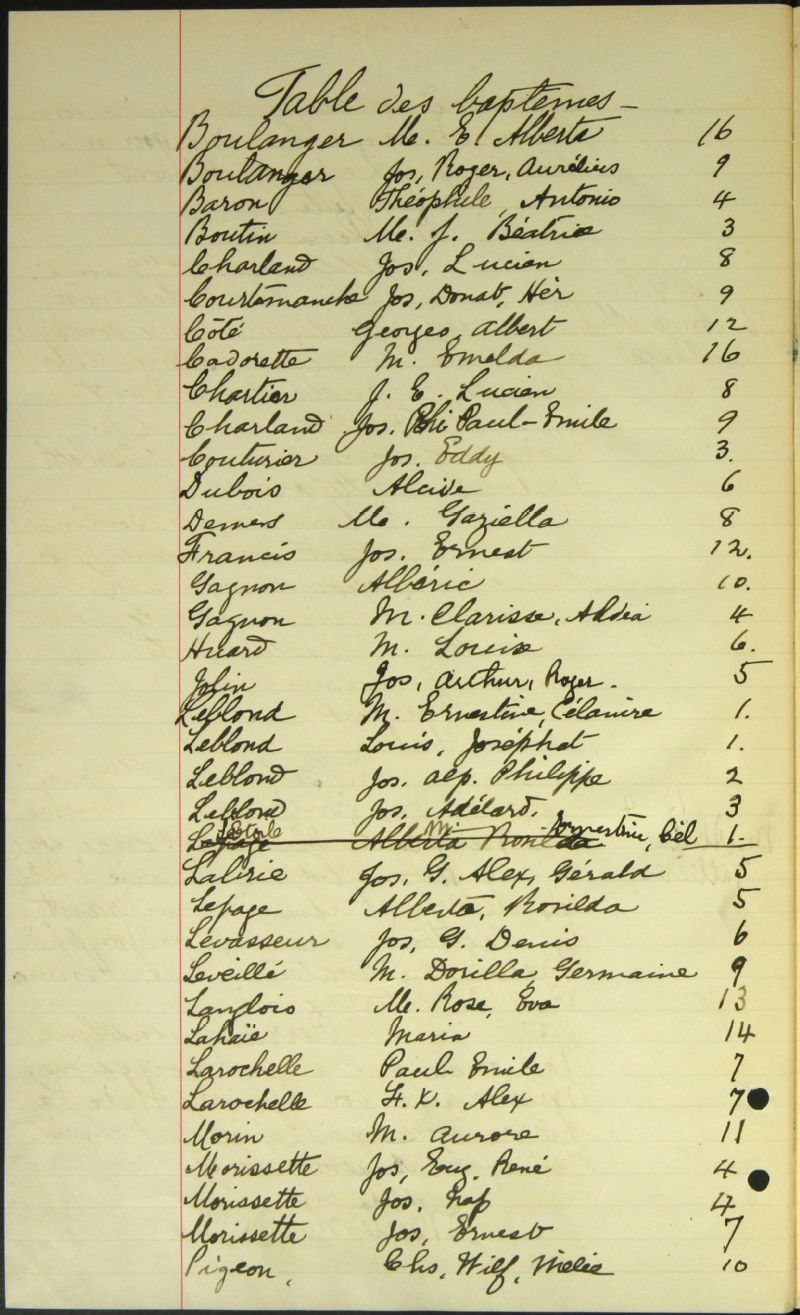 Table des baptemes -
Boulanger M. E. Alberta 16
Boulanger Jos, Roger, Aurélius 9
Baron Théophile, Antonio 4
Boutin M. J. Béatrice 3
Charland Jos, Lucien 8
Courtemanche Jos, Donat, Hér 9
Côté Georges, Albert 12
Cadorette M. Emelda 16
Chartier J. E. Lucien 8
Charland Jos. Phi Paul-Emile 9
Couturier Jos. Eddy 3.
Dubois Alcide 6
Demers M. Gaziella 8
Francis Jos. Ernest 12.
Gagnon Albéric 10.
Gagnon M. Clarisse, Aldéa 4
Huard M. Louise 6.
Jolin Jos, Arthur, Roger. 5
Leblond M. Ernestine, Célanire 1.
Leblond Louis, Joséphat 1.
Leblond Jos. Alp. Philippe 2
Leblond Jos, Adélard. 3
Lepage Alberta M. Ernestine, Cél 1.
Labrie Jos, G. Alex, Gérald 5
Lepage Alberta, Rosilda 5
Levasseur Jos, G. Denis 6
Leveillé M. Dorilla, Germaine 9
Langlois M. Rose, Eva 13
Lahaïe Maria 14
Larochelle Paul Emile 7
Larochelle F. X. Alex 7
Morin M. Aurore 11
Morissette Jos, Eug. René 4
Morissette Jos. Nap 4
Morissette Jos, Ernest 7
Pigeon, Chs, Wilf, 10